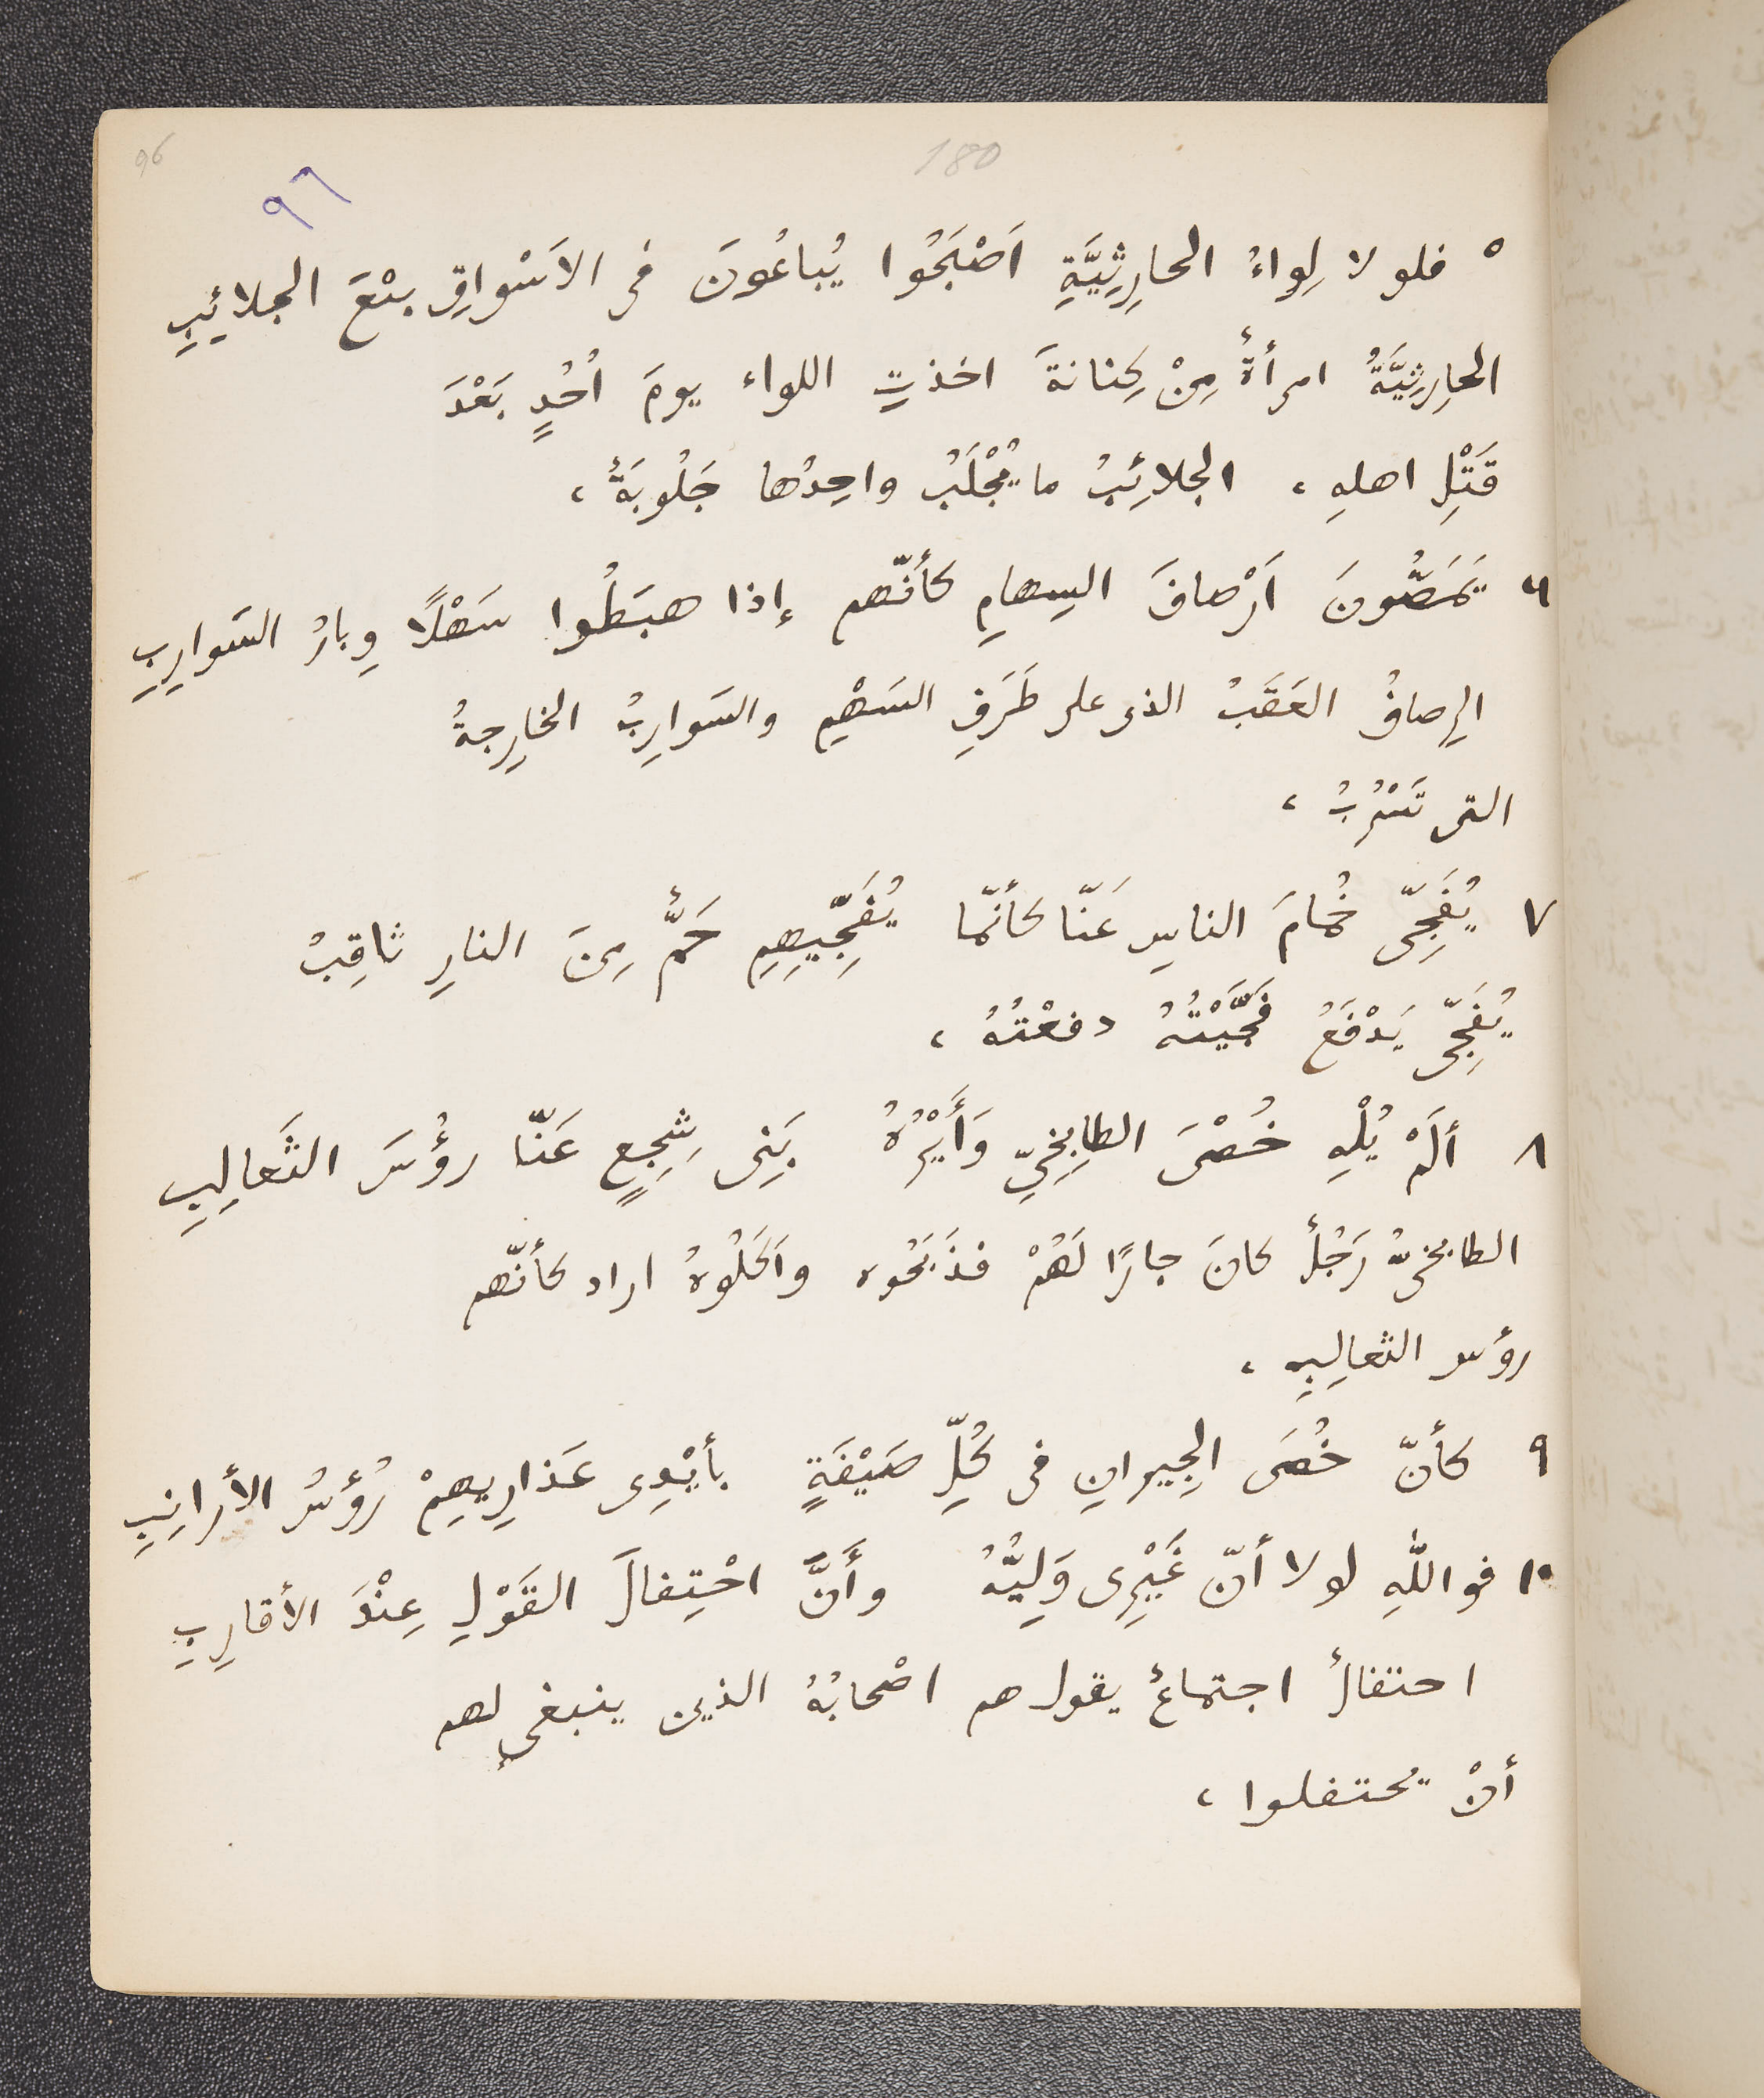 96
180
٩٦
٥ فلو لا لِواءُ الحارِثِيَّةِ اَصْبَحُوا يُباعُونَ فى الاَسْواقِ بَيْعَ الجلائِبِ
الحارِثِيَّةُ امرأةٌ مِنْ كِنانةَ اخذتِ اللواء يومَ اُحُدٍ بَعْدَ
قَتْلِ اهلهِ ، الجلائِبُ ما يُجْلَبُ واحِدُها جَلُوبَةٌ ،
٦ يَمَصُّونَ اَرْصافَ السِهامِ كأنّهم إذا هبَطُوا سَهْلًا وِبارُ السَوارِبِ
الرِصافُ العَقَبُ الذى على طَرَفِ السَهْمِ والسَوارِبُ الخارِجةُ
التى تَسْرُبُ ،
٧ يُفَجِّى خُمامَ الناسِ عَنّا كأنّما يُفَجِّيهِمِ حَمٌّ مِنَ النارِ ثاقِبُ
يُفَجِّى يَدْفَعُ فَجَّيْتُهُ دفعْتُهُ ،
٨ ألَمْ يُلْهِ خُصْىَ الطابِخِىِّ وَأَيْرُهُ بَنِى شِجِعٍ عَنّا رؤُسَ الثَعالِبِ
الطابخىُّ رَجُلٌ كانَ جارًا لَهُمْ فذَبَحُوه واَكَلُوهُ اراد كأنّهم
رؤس الثعالِبِ ،
٩ كأنّ خُصَى الجِيرانِ فى كُلِّ صَيْفَةٍ بأيْدِى عَذارِيهِمْ رُؤسُ الأرانِبِ
١٠ فواللّهِ لولا أنّ غَيْرِى وَلِيُّهُ وأَنَّ احْتِفالَ القَوْلِ عِنْدَ الأقارِبِ
احتفالٌ اجتماعٌ يقول هم اصْحابُهُ الذين ينبغى لهم
أنْ يحتفلوا ،